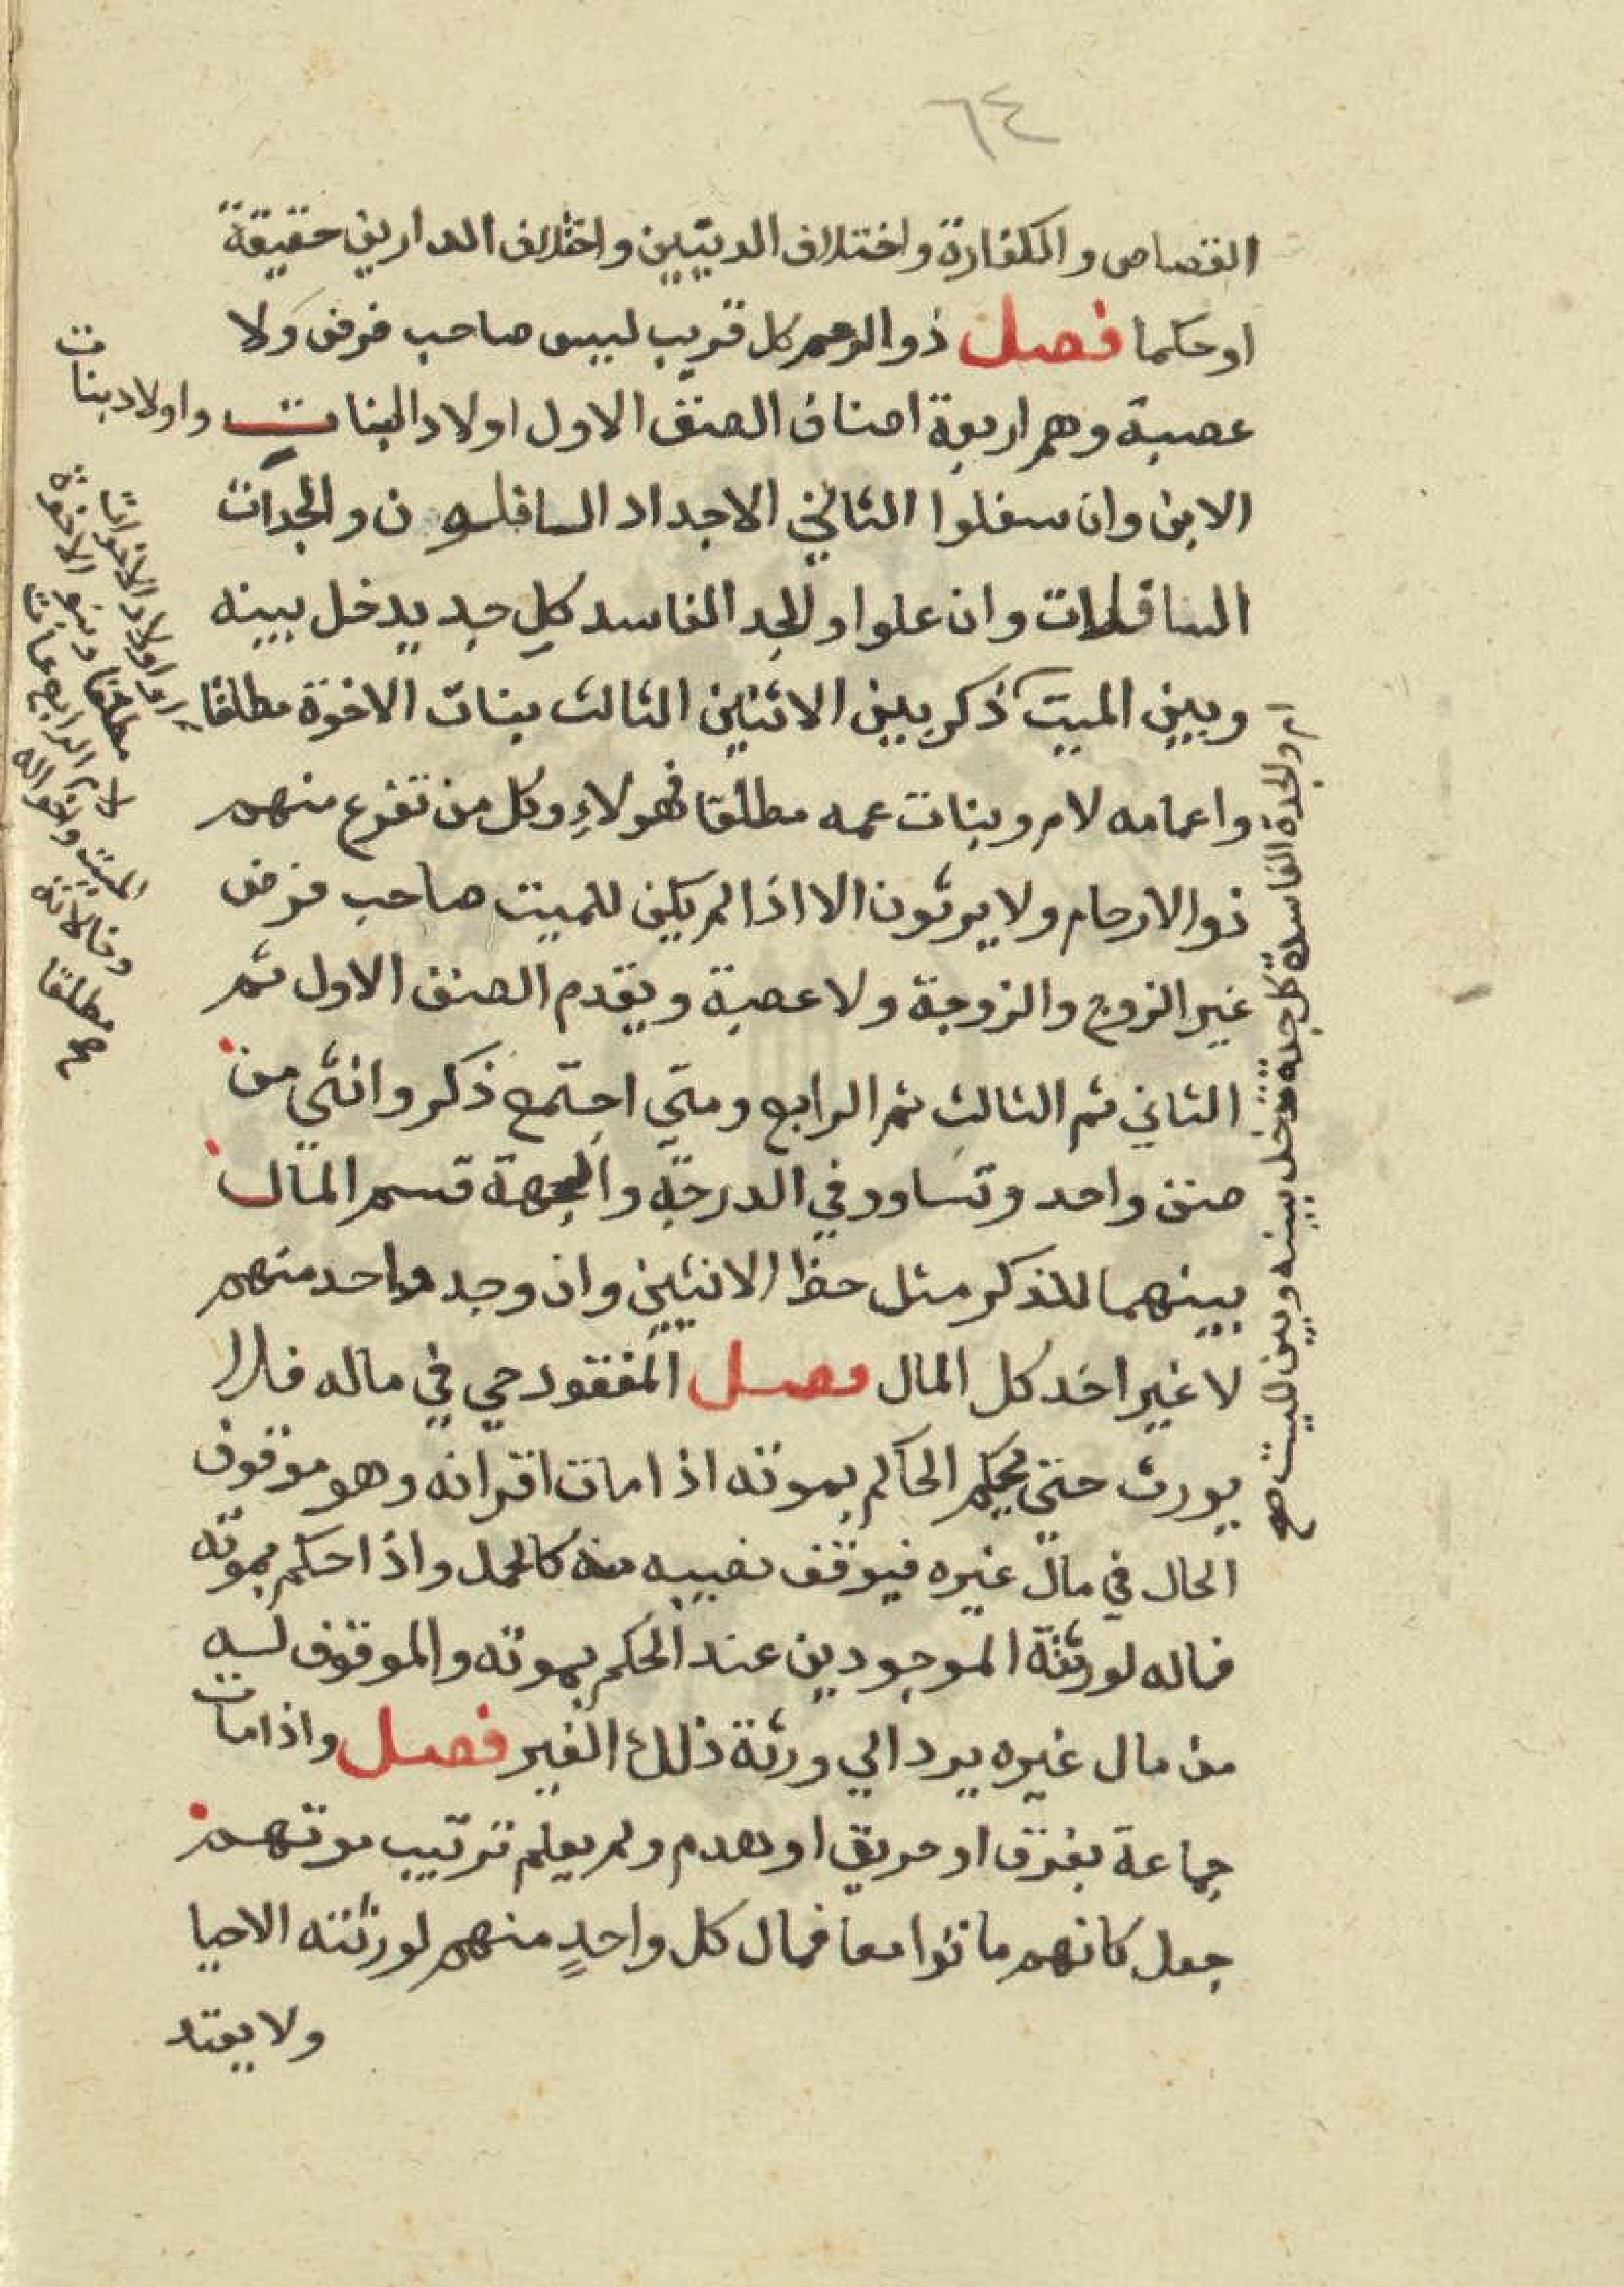 ٦٤
القصاص والكفارة واختلاف الدينين واختلاف الدارين حقيقة
او حكما فصل ذو الرحم كل قريب ليس صاحب فرض ولا
عصبة وهم اربعة اصناف الصنف الاول اولاد البنات واولاد بنات
الابن وان سفلوا الثاني الاجداد الساقطون والجدات
الساقطات وان علوا والجد الفاسد كل جد يدخل بينه
وبين الميت ذكر بين الاثنين الثالث بنات الاخوة مطلقا
واعمامه لام وبنات عمه مطلقا فهولاءِ وكل من تفرع منهم
ذوا الارحام ولا يرثون الا اذا لم يكن للميت صاحب فرض
غير الزوج والزوجة ولا عصبة ويقدم الصنف الاول ثم
الثاني ثم الثالث ثم الرابع ومتي اجتمع ذكر وانثي من
صنف واحد وتساوو في الدرجة والجهة قسم المال
بينهما للذكر مثل حظ الانثيين وان وجد واحد منهم
لا غير اخد كل المال فصل المفقود حي في ماله فلا
يورث حتي يحكم الحاكم بموته اذا مات اقرانه وهو موقوف
الحال في مال غيره فيوقف نصيبه منه كالحمل واذا حكم بموته
فماله لورثته الموجودين عند الحكم بموته والموقوف له
من مال غيره يرد الي ورثة ذلك الغير فصل واذا مات
جماعة بغرق او حريق او هدم ولم يعلم ترتيب موتهم
جعل كانهم ماتوا معا فمال كل واحدٍ منهم لورثته الاحيا
ولا يعتد
واولاد الاخوات
مطلقا وبنو الاخوة
لام الرابع عماة
الميت واخواله
وخالاته
مطلقا
صح
ام والجدة الفاسدة كل جدة تدخل بينه وبين الميت صح